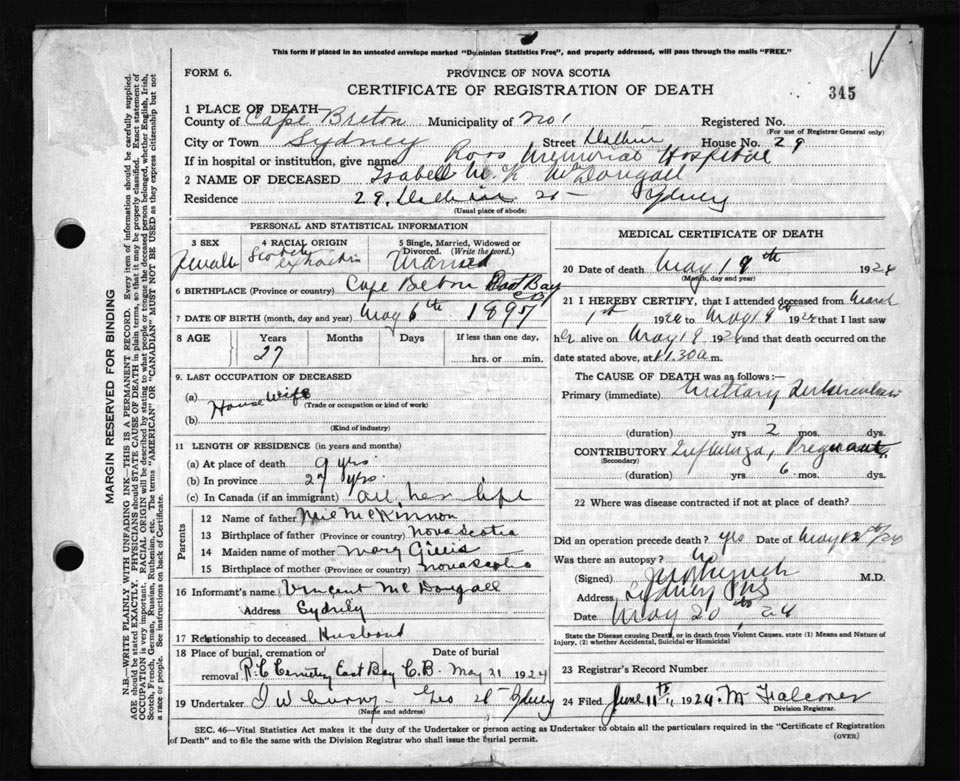 This form if placed in an unsealed envelope marked "Dominion Statistics Free", and properly addressed, will pass through the mails "FREE."
FORM 6.
PROVINCE OF NOVA SCOTIA
CERTIFICATE OF REGISTRATION OF DEATH
345
1 PLACE OF DEATH
County of Cape Breton Municipality of No 1 Registered No.
(For use of Registrar General only)
City or Town Sydney Street House No. 29
If in hospital or institution, give name Ross Memorial Hospital
2 NAME OF DECEASED Isabel McK McDougall
Residence 29, St Sydney
(Usual place of abode)
PERSONAL AND STATISTICAL INFORMATION
3 SEX Female
4 RACIAL ORIGIN Scotch extraction
5 Single, Married, Widowed or Divorced. (Write the word.) Married
6 BIRTHPLACE (Province or country) Cape Breton East Bay CB
7 DATE OF BIRTH (month, day and year) May 6th 1897
8 AGE Years 27 Months Days If less than one day, hrs. or min.
9. LAST OCCUPATION OF DECEASED
(a) House Wife
(Trade or occupation or kind of work)
(b)
(Kind of industry)
11 LENGTH OF RESIDENCE (in years and months)
(a) At place of death 9 yrs.
(b) In province 27 yrs.
(c) In Canada (if an immigrant) all her life
Parents
12 Name of father McKinnon
13 Birthplace of father (Province or country) Nova Scotia
14 Maiden name of mother Mary Gillis
15 Birthplace of mother (Province or country) Nova Scotia
16 Informant's name Vincent McDougall
Address Sydney
17 Relationship to deceased Husband
18 Place of burial, cremation or removal Date of burial
R.C Cemetery East Bay C.B. May 21 1924
19 Undertaker Geo St Sydney
(Name and address)
MEDICAL CERTIFICATE OF DEATH
20 Date of death May 19th 1924
(Month, day and year)
21 I HEREBY CERTIFY, that I attended deceased from March
1st 1924 to May 19th 1924 that I last saw
her alive on May 19 1924 and that death occurred on the
date stated above, at 11.30 a m.
The CAUSE OF DEATH was as follows:—
Primary (immediate)
(duration) yrs 2 mos. dys.
CONTRIBUTORY Influenza, Pregnant
(Secondary)
(duration) yrs 6 mos. dys.
22 Where was disease contracted if not at place of death?
Did an operation precede death? yrs Date of May /24
Was there an autopsy? No
(Signed) Lynch M.D.
Address Sydney
Date May 20th 24
State the Disease causing Death, or in death from Violent Causes, state (1) Means and Nature of Injury, (2) whether Accidental, Suicidal or Homicidal
23 Registrar's Record Number
24 Filed June 11th 1924. M Falconer
Division Registrar.
SEC. 46—Vital Statistics Act makes it the duty of the Undertaker or person acting as Undertaker to obtain all the particulars required in the "Certificate of Registration of Death" and to file the same with the Division Registrar who shall issue the burial permit.
(OVER)
MARGIN RESERVED FOR BINDING
N.B.—WRITE PLAINLY WITH UNFADING INK—THIS IS A PERMANENT RECORD. Every item of information should be carefully supplied.
AGE should be stated EXACTLY. PHYSICIANS should state CAUSE OF DEATH in plain terms, so that it may be properly classified. Exact statement of
OCCUPATION is very important. RACIAL ORIGIN will be described by stating to what people or tongue the deceased person belonged, whether English, Irish,
Scotch, French, German, Russian, Ruthenian, etc. The terms "AMERICAN" OR "CANADIAN" MUST NOT BE USED as they express citizenship but not
a race or people. See instructions on back of Certificate.